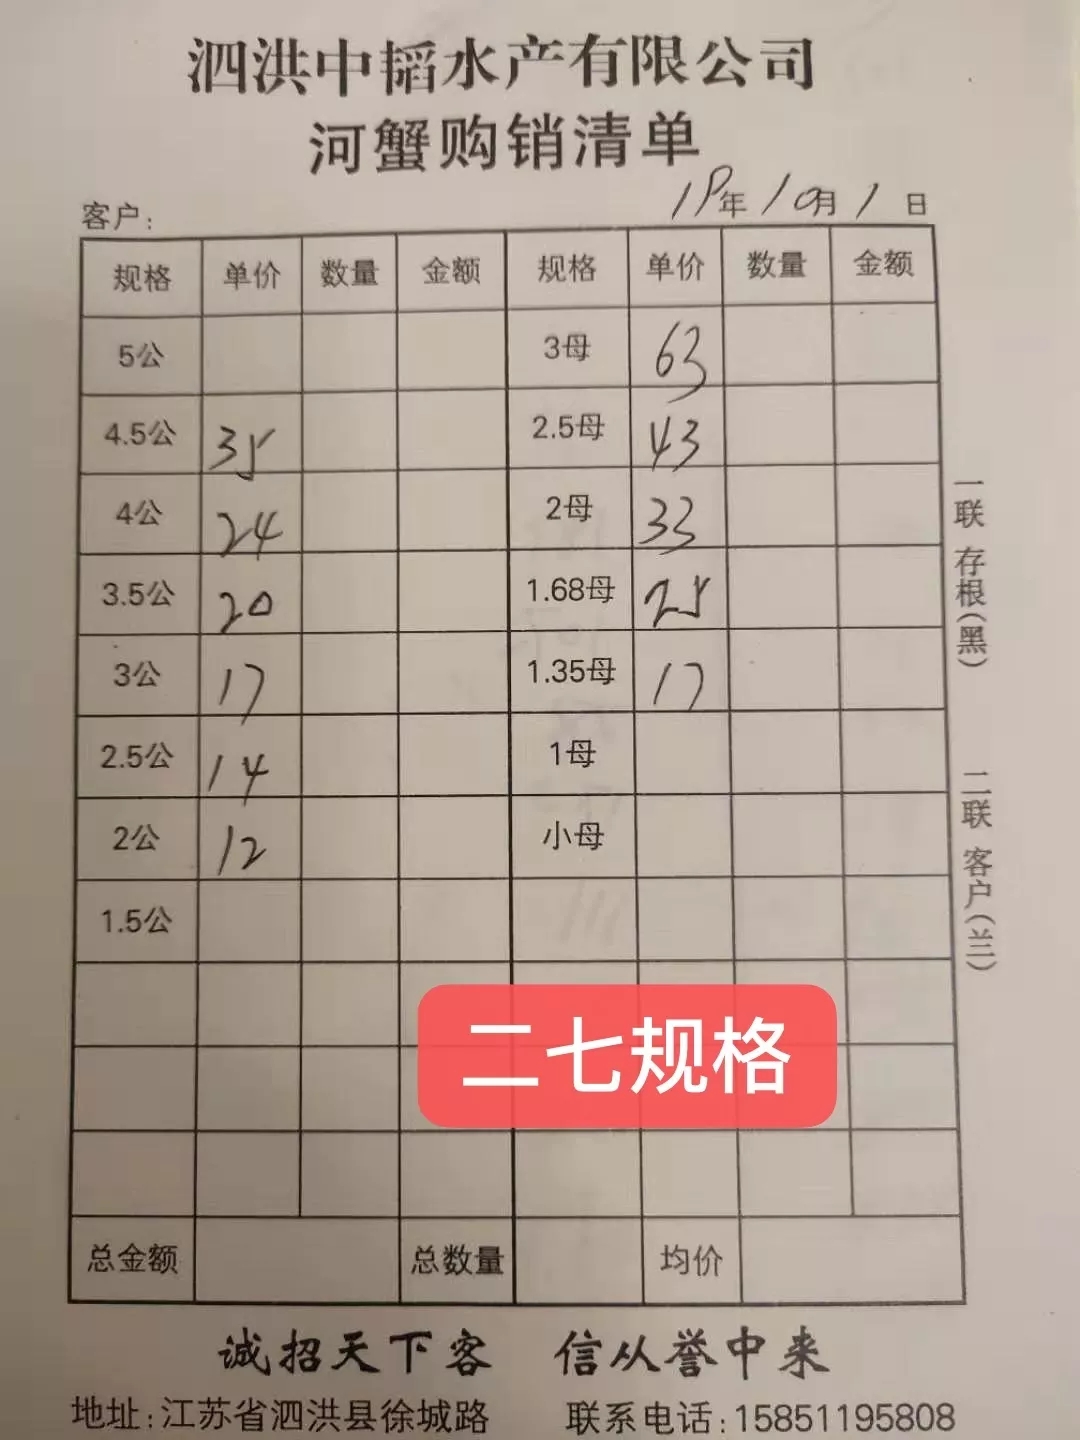 泗洪中韬水产有限公司
河蟹购销清单
客户: 19年10月1日
规格 单价 数量 金额 规格 单价 数量 金额
5公 3母 63
4.5公 35 2.5母 43
4公 24 2母 33
3.5公 20 1.68母 25
3公 17 1.35母 17
2.5公 14 1母
2公 12 小母
1.5公
二七规格
总金额 总数量 均价
一联 存根(黑)
二联 客户(兰)
诚招天下客 信从誉中来
地址:江苏省泗洪县徐城路 联系电话:15851195808